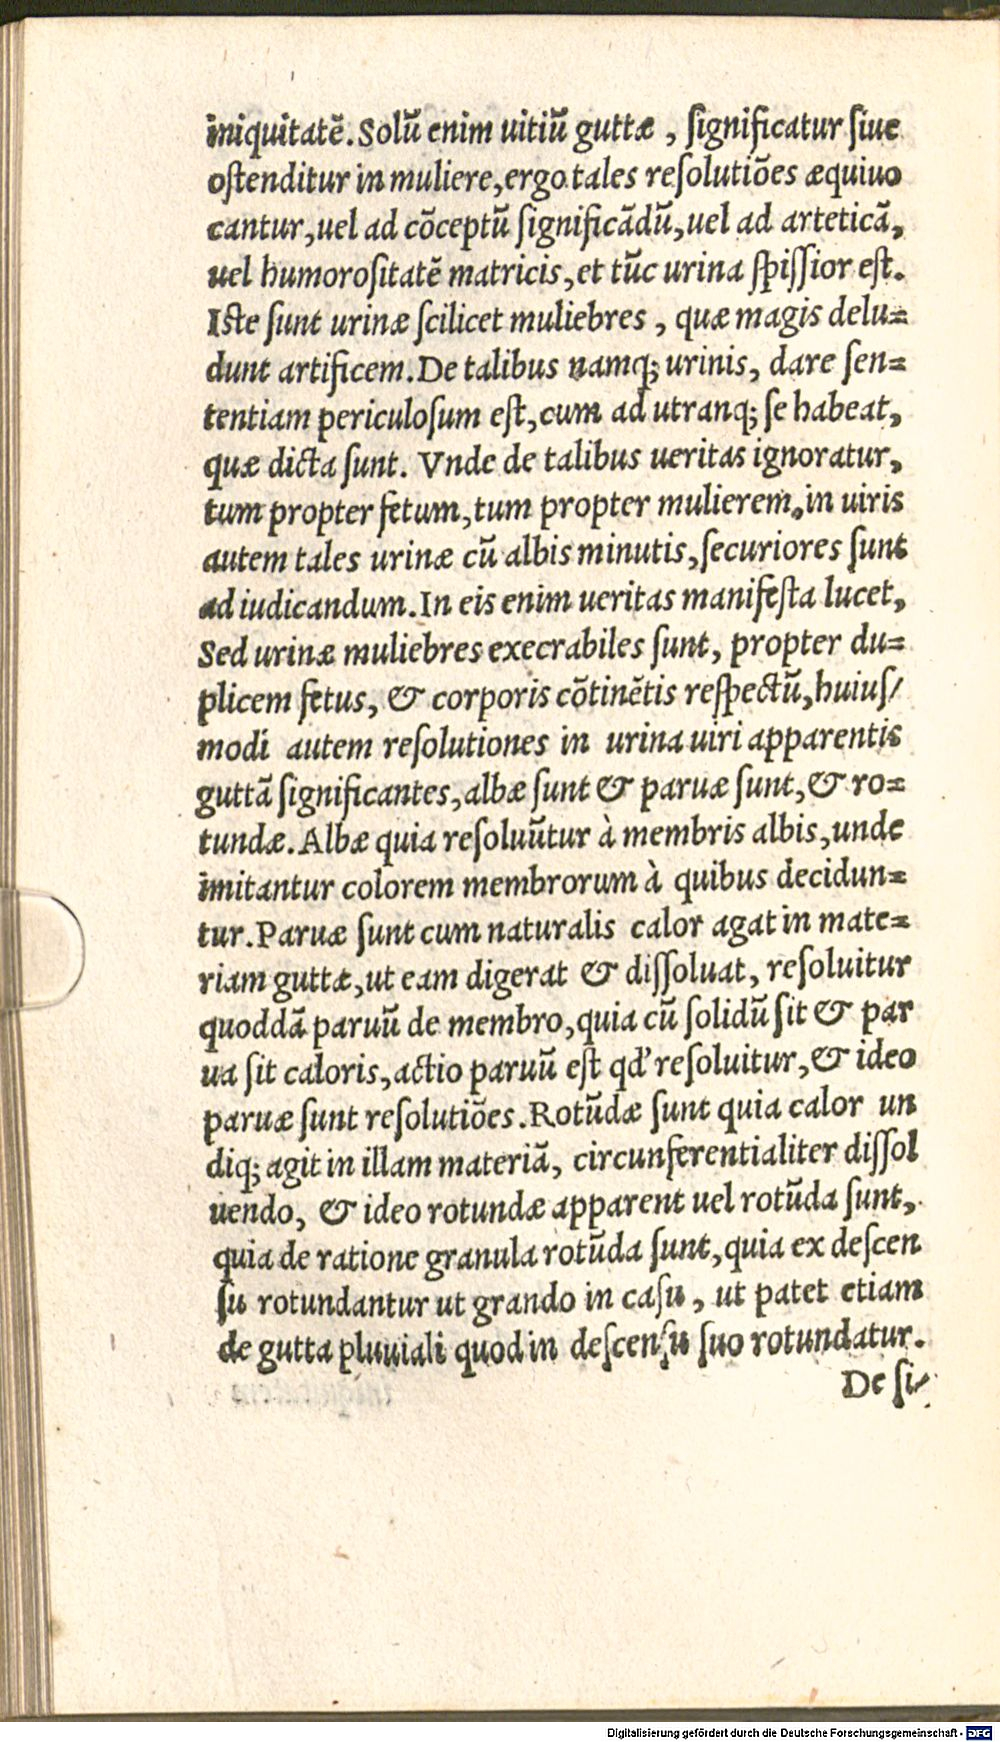 iniquitatẽ. Solũ enim uitiũ guttæ, ſignificatur ſiue
oſtenditur in muliere, ergo tales reſolutiões æquiuo
cantur, uel ad cõceptũ ſignificãdũ, uel ad arteticã,
uel humoroſitatẽ matricis, et tũc urina ſpiſſior eſt.
Iſte ſunt urinæ ſcilicet muliebres, quæ magis delu=
dunt artificem. De talibus namq; urinis, dare ſen=
tentiam periculoſum eſt, cum ad utranq; ſe habeat,
quæ dicta ſunt. Vnde de talibus ueritas ignoratur,
tum propter fetum, tum propter mulierem, in uiris
autem tales urinæ cũ albis minutis, ſecuriores ſunt
ad iudicandum. In eis enim ueritas manifeſta lucet,
Sed urinæ muliebres execrabiles ſunt, propter du=
plicem fetus, & corporis cõtinẽtis reſpectũ, huiuſ/
modi autem reſolutiones in urina uiri apparentis
guttã ſignificantes, albæ ſunt & paruæ ſunt, & ro=
tundæ. Albæ quia reſoluũtur à membris albis, unde
imitantur colorem membrorum à quibus decidun=
tur. Paruæ ſunt cum naturalis calor agat in mate=
riam guttæ, ut eam digerat & diſſoluat, reſoluitur
quoddã paruũ de membro, quia cũ ſolidũ ſit & par
ua ſit caloris, actio paruũ eſt qd' reſoluitur, & ideo
paruæ ſunt reſolutiões. Rotũdæ ſunt quia calor un
diq; agit in illam materiã, circunferentialiter diſſol
uendo, & ideo rotundæ apparent uel rotũda ſunt,
quia de ratione granula rotũda ſunt, quia ex deſcen
ſu rotundantur ut grando in caſu, ut patet etiam
de gutta pluuiali quod in deſcenſu ſuo rotundatur.
De ſi/
Digitalisierung gefördert durch die Deutsche Forschungsgemeinschaft - DFG